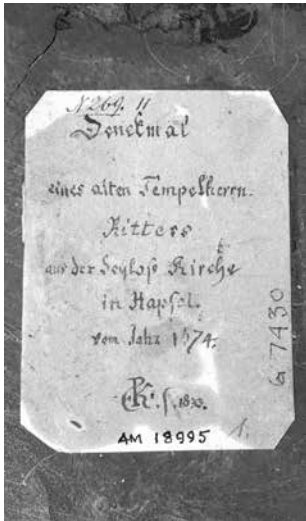 N 269. 11
Denckmal
eines alten Tempelherrn.
Ritters
aus der Schloss Kirche
in Hapsal.
vom Jahr 1574.
AM 18995
G 7430